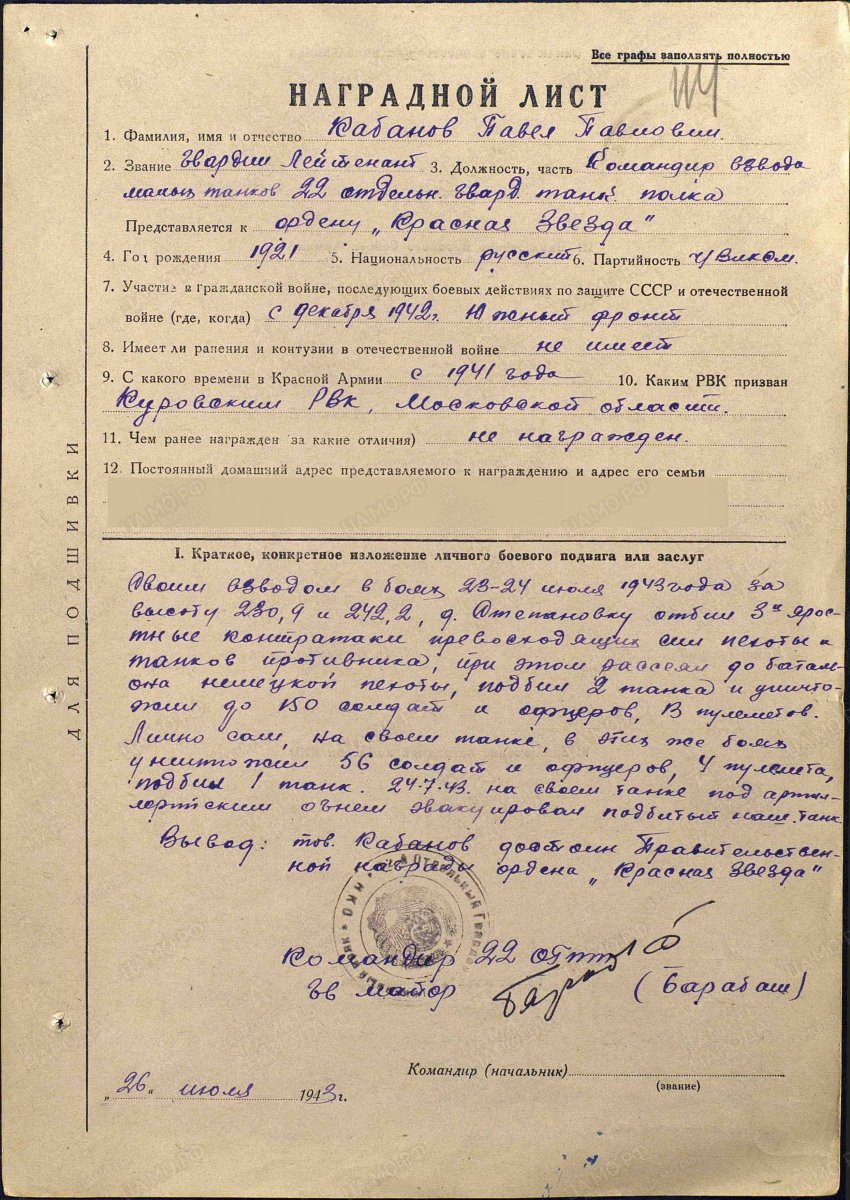 Все графы заполнять полностью
НАГРАДНОЙ ЛИСТ
1. Фамилия, имя и отчество Кабанов Павел Павлович.
2. Звание Гвардии Лейтенант 3. Должность, часть Командир взвода
малых танков 22 отдельн. гвард. танк. полка
Представляется к ордену „Красная Звезда"
4. Год рождения 1921 5. Национальность русский 6. Партийность ч/ВЛКСМ.
7. Участие в гражданской войне, последующих боевых действиях по защите СССР и отечественной
войне (где, когда) с декабря 1942г. Южный фронт
8. Имеет ли ранения и контузии в отечественной войне не имеет
9. С какого времени в Красной Армии с 1941 года 10. Каким РВК призван
Куровским РВК, Московской области.
11. Чем ранее награжден за какие отличия) не награжден.
12. Постоянный домашний адрес представляемого к награждению и адрес его семьи
I. Краткое, конкретное изложение личного боевого подвига или заслуг
Своим взводом в боях 23-24 июля 1943 года за
высоту 230,9 и 242,2, д. Степановку отбил 3х ярос-
тные контратаки превосходящих сил пехоты и
танков противника, при этом рассеял до баталь-
она немецкой пехоты, подбил 2 танка и уничто-
жил до 150 солдат и офицеров, 13 пулеметов.
Лично сам, на своем танке, в этих же боях
уничтожил 56 солдат и офицеров, 4 пулемета,
подбил 1 танк. 24.7.43. на своем танке под артил-
лерийским огнем эвакуировал подбитый наш танк
Вывод: тов. Кабанов достоин Правительствен-
ной награды ордена „Красная Звезда"
Командир 22 ОГТП
Гв майор (Барабаш)
Командир (начальник)
(звание)
„26" июля 1943г.
ДЛЯ ПОДШИВКИ